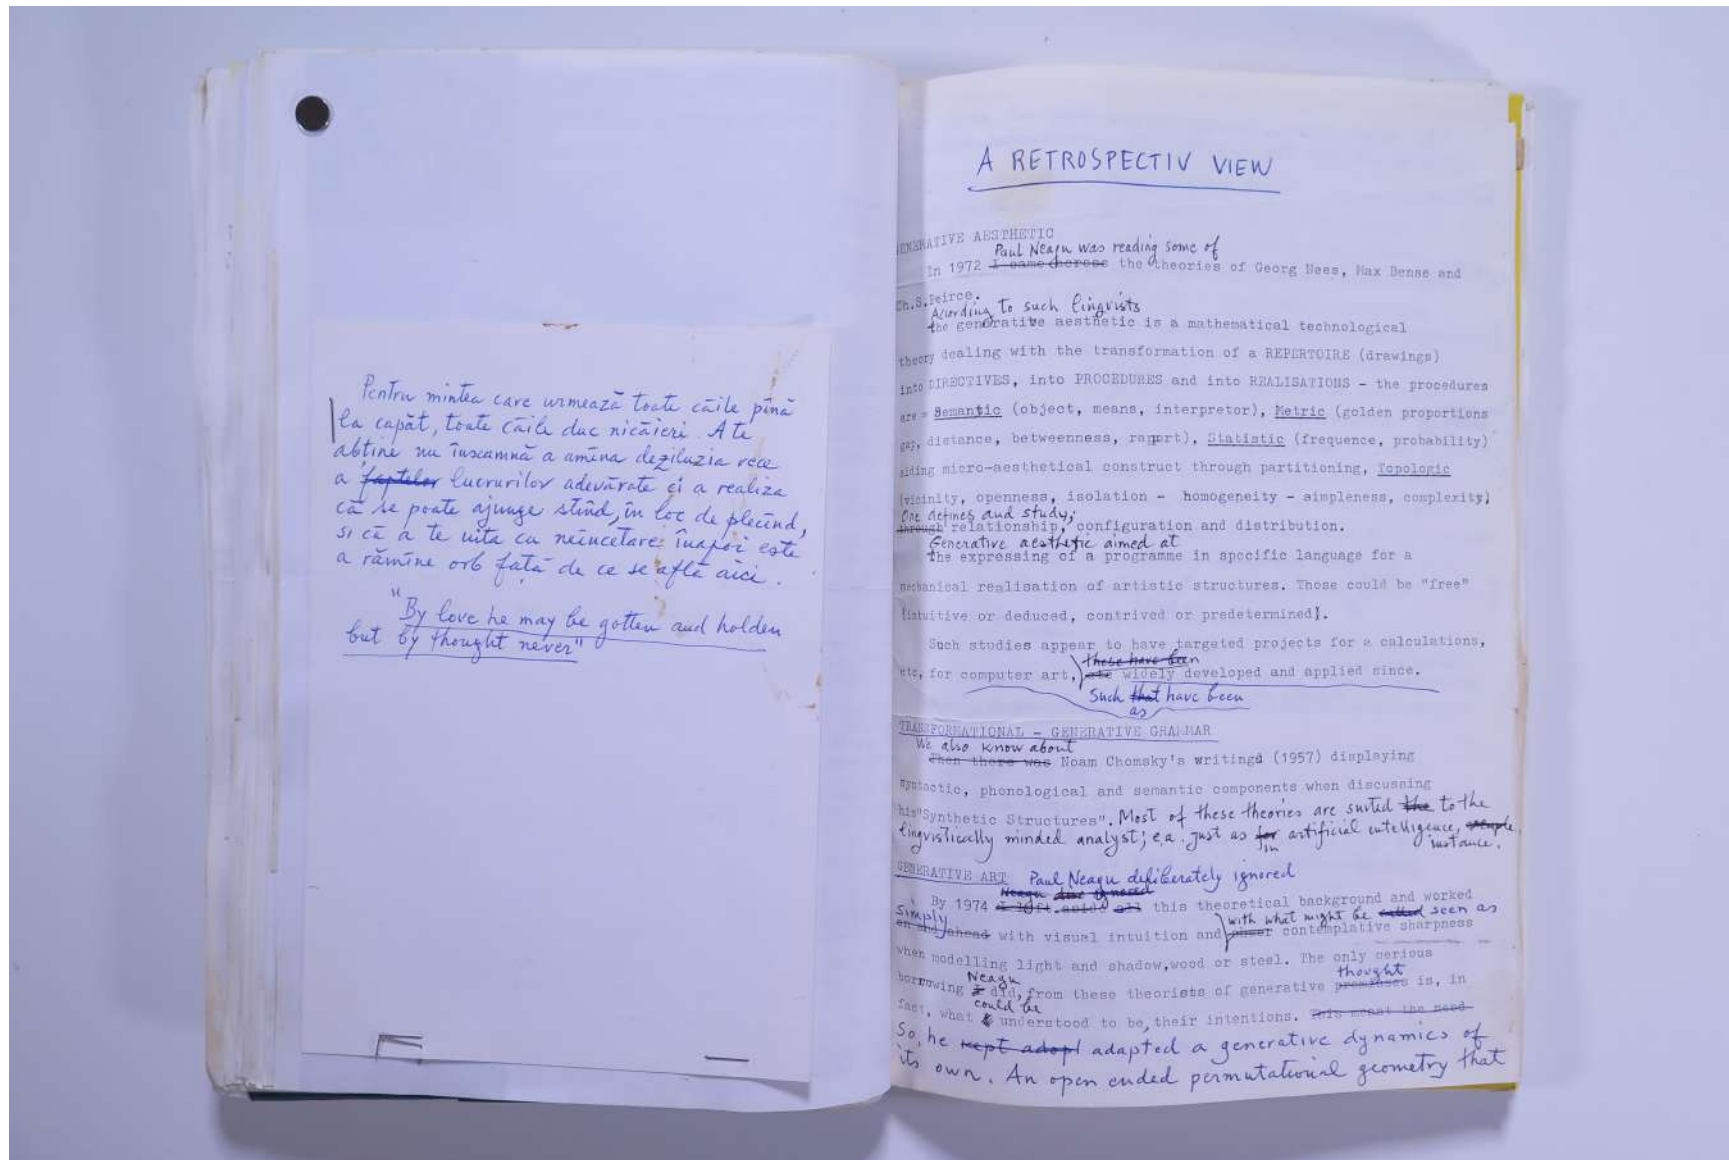 Pentru mintea care urmează toate căile pînă
la capăt, toate căile duc nicăieri. A te
abține nu înseamnă a amîna deziluzia rece
a faptelor lucrurilor adevărate ci a realiza
că se poate ajunge stînd, în loc de plecînd,
si că a te uita cu neîncetare înapoi este
a rămîne orb față de ce se află aici.
"By love he may be gotten and holden
but by thought never"
A RETROSPECTIV VIEW
ENERATIVE AESTHETIC
Paul Neagu was reading some of
In 1972 I came across the theories of Georg Nees, Max Bense and
Ch.S.Peirce.
Acording to such lingvists
the generative aesthetic is a mathematical technological
theory dealing with the transformation of a REPERTOIRE (drawings)
into DIRECTIVES, into PROCEDURES and into REALISATIONS - the procedures
are = Semantic (object, means, interpretor), Metric (golden proportions
gap, distance, betweenness, rapport), Statistic (frequence, probability)
aiding micro-aesthetical construct through partitioning, Topologic
(vicinity, openness, isolation - homogeneity - simpleness, complexity)
One defines and study;
through relationship, configuration and distribution.
Generative aesthetic aimed at
the expressing of a programme in specific language for a
mechanical realisation of artistic structures. Those could be "free"
(intuitive or deduced, contrived or predetermined).
Such studies appear to have targeted projects for a calculations,
these have been
etc, for computer art, are widely developed and applied since.
Such that have been
as
TRANSFORMATIONAL - GENERATIVE GRAMMAR
We also know about
Then there was Noam Chomsky's writings (1957) displaying
syntactic, phonological and semantic components when discussing
his "Synthetic Structures". Most of these theories are suited the to the
lingvistically minded analyst; e.a. just as for artificial intelligence,
in instance.
GENERATIVE ART Paul Neagu deliberately ignored
Neagu ignored
By 1974 I left aside all this theoretical background and worked
simply with what might be called seen as
on and ahead with visual intuition and sheer contemplative sharpness
when modelling light and shadow, wood or steel. The only serious
Neagu thought
borrowing I did, from these theorists of generative is, in
could be
fact, what I understood to be, their intentions. This meant the need
So, he kept adopt adapted a generative dynamics of
its own. An open ended permutational geometry that